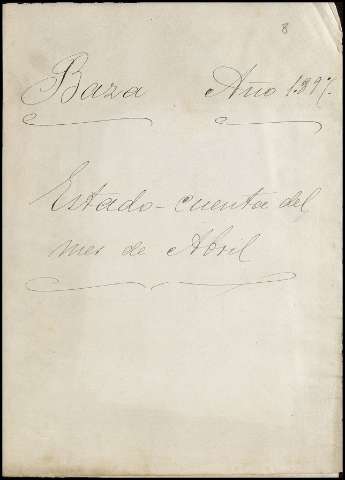 8
Baza Año 1897.
Estado-cuenta del
mes de Abril